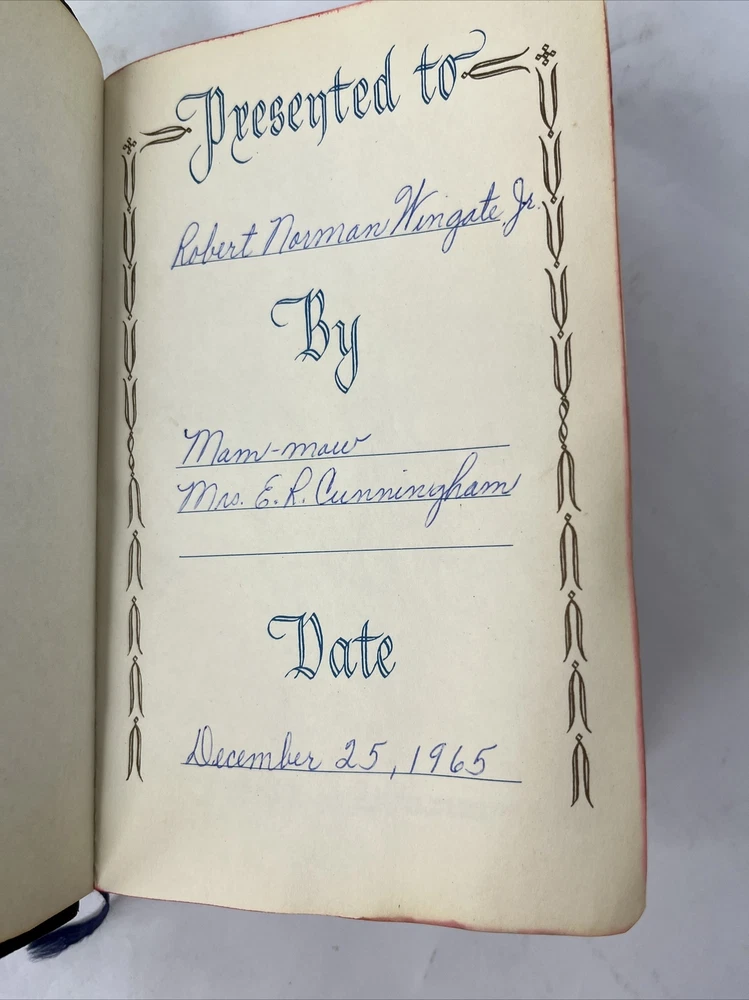 Presented to
Robert Norman Wingate, Jr.
By
Mam-maw
Mrs. E. R. Cunningham
Date
December 25, 1965